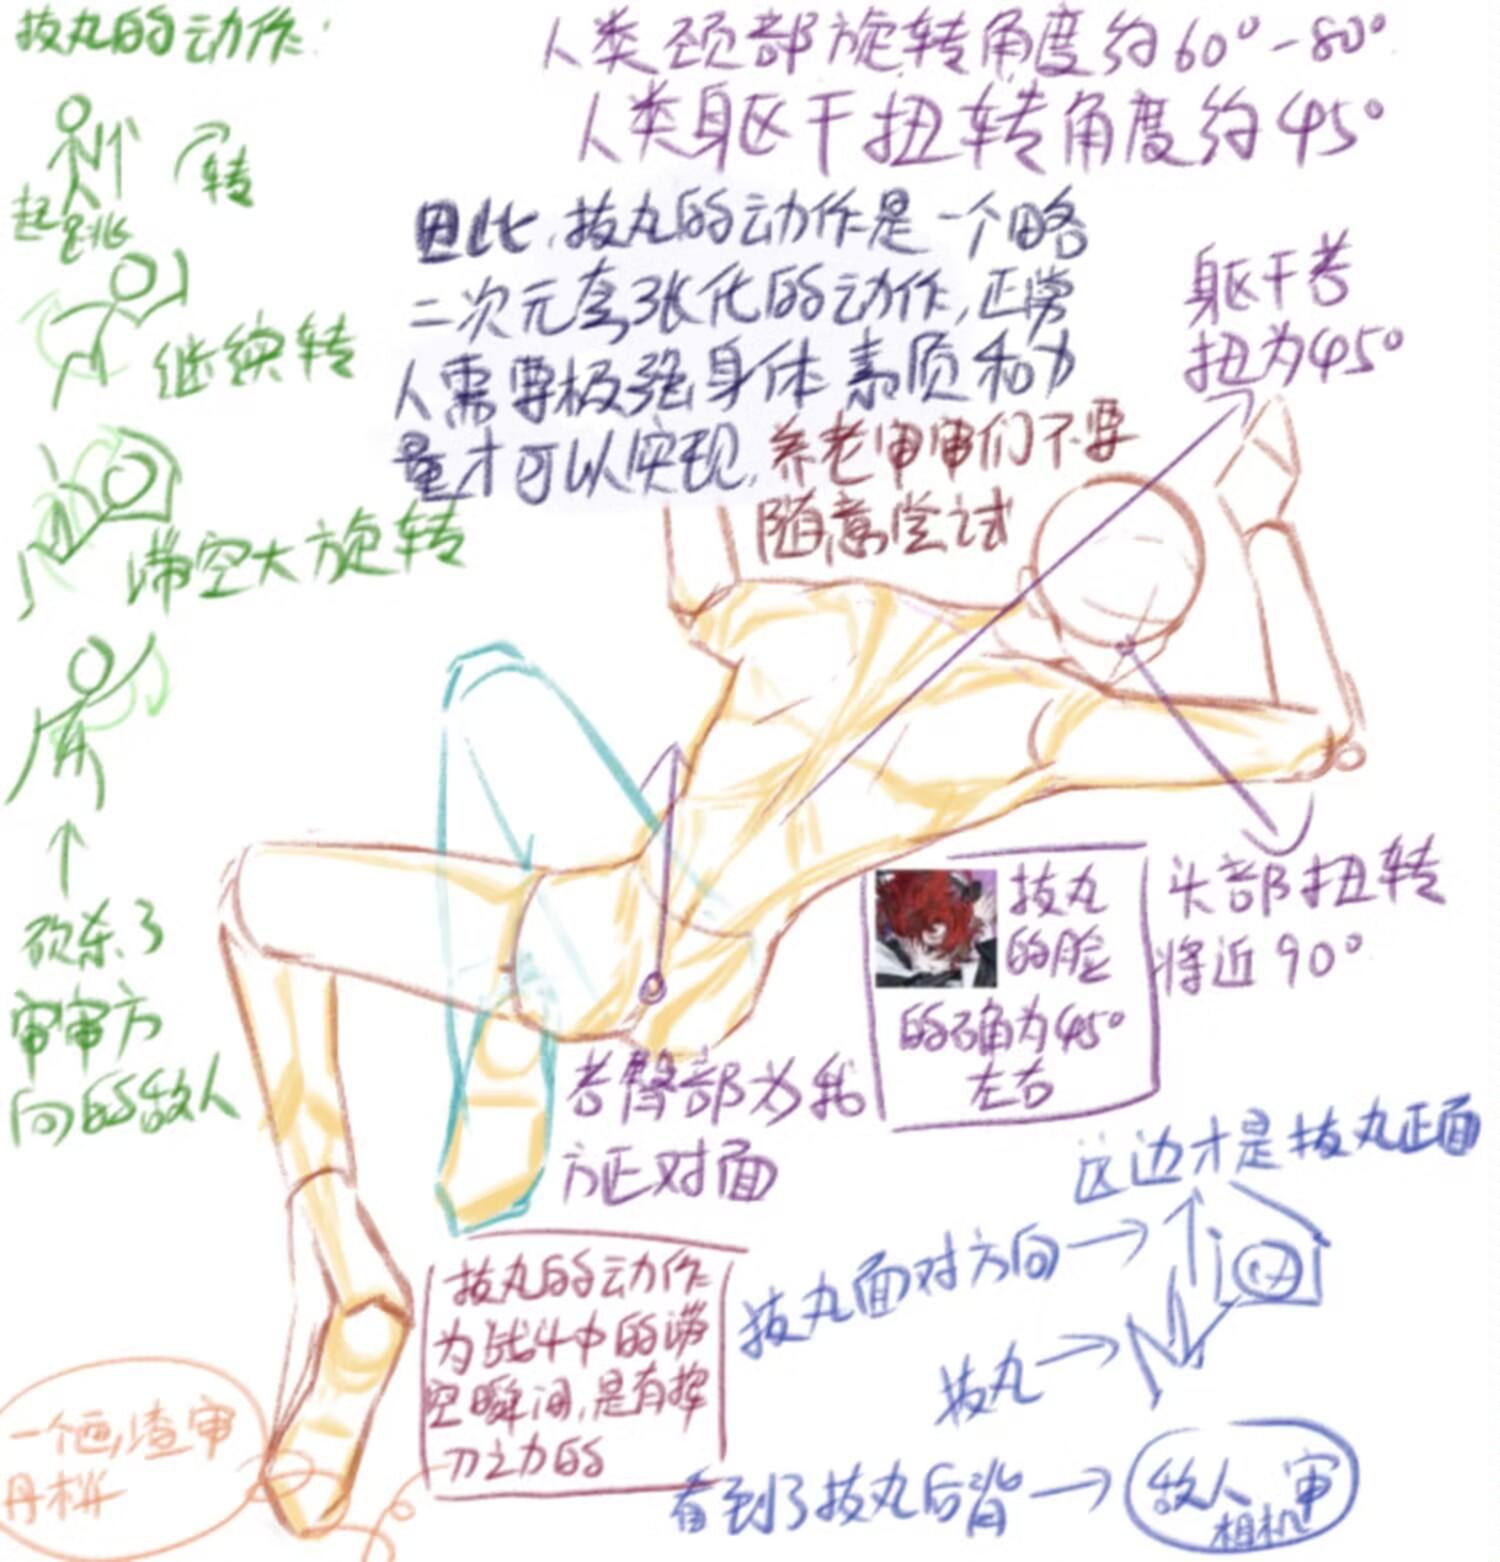 拔丸的动作:
转
起跳
继续转
滞空大旋转
砍杀了
审审方
向的敌人
人类颈部旋转角度约60°-80°
人类躯干扭转角度约45°
因此,拔丸的动作是一个略
二次元夸张化的动作,正常
人需要极强身体素质和力
量才可以实现,养老审审们不要
随意尝试
躯干若
扭为45°
拔丸
的脸
的下角为45°
左右
头部扭转
将近90°
若臀部为我
方正对面
这边才是拔丸正面
拔丸面对方向→
拔丸→
看到了拔丸后背→
敌人 审
相机
拔丸的动作
为战斗中的滞
空瞬间,是有挥
刀之力的
一个画渣审
丹桦